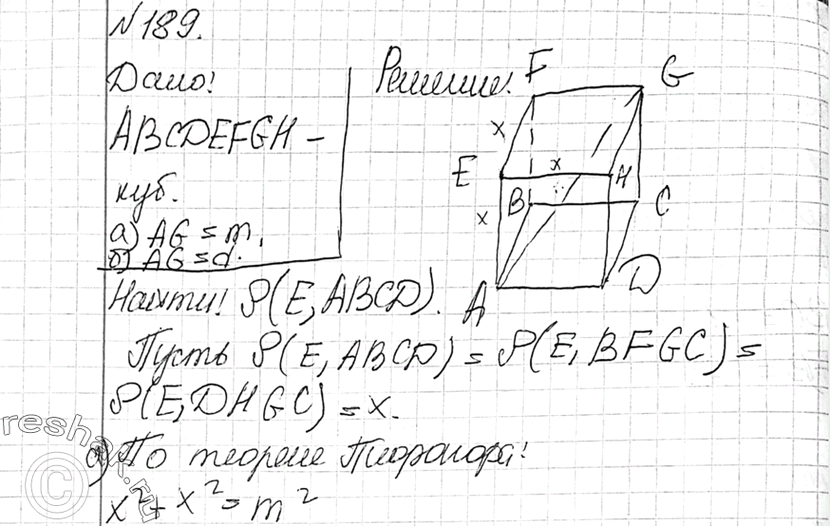 №189.
Дано:
Решение:
ABCDEFGH –
куб.
а) AG = m,
б) AG = d.
F
G
x
x
E
H
x
B
C
A
D
Найти: ρ(E, ABCD).
Пусть ρ(E, ABCD) = ρ(E, BFGC) =
ρ(E, DHGC) = x.
а) По теореме Пифагора:
x² + x² = m²
reshak.ru
©